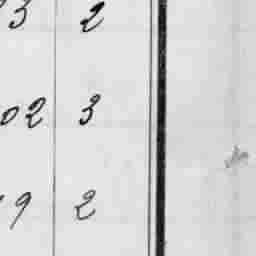 3 2
02 3
9 2